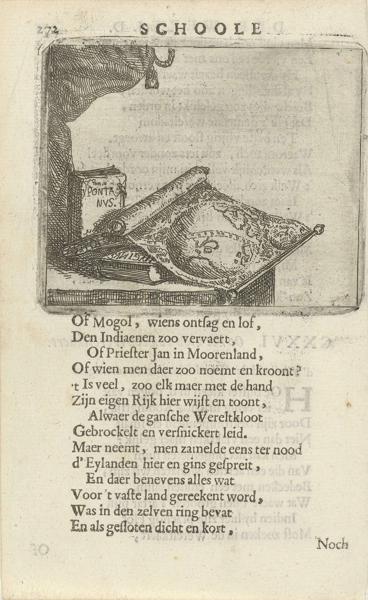 272 SCHOOLE
PONTA
NVS.
Of Mogol, wiens ontsag en lof,
Den Indiaenen zoo vervaert,
Of Priester Jan in Moorenland,
Of wien men daer zoo noemt en kroont?
't Is veel, zoo elk maer met de hand
Zijn eigen Rijk hier wijst en toont,
Alwaer de gansche Wereltkloot
Gebrockelt en versnickert leid.
Maer neemt, men zamelde eens ter nood
d'Eylanden hier en gins gespreit,
En daer benevens alles wat
Voor 't vaste land gereekent word,
Was in den zelven ring bevat
En als gesloten dicht en kort,
Noch